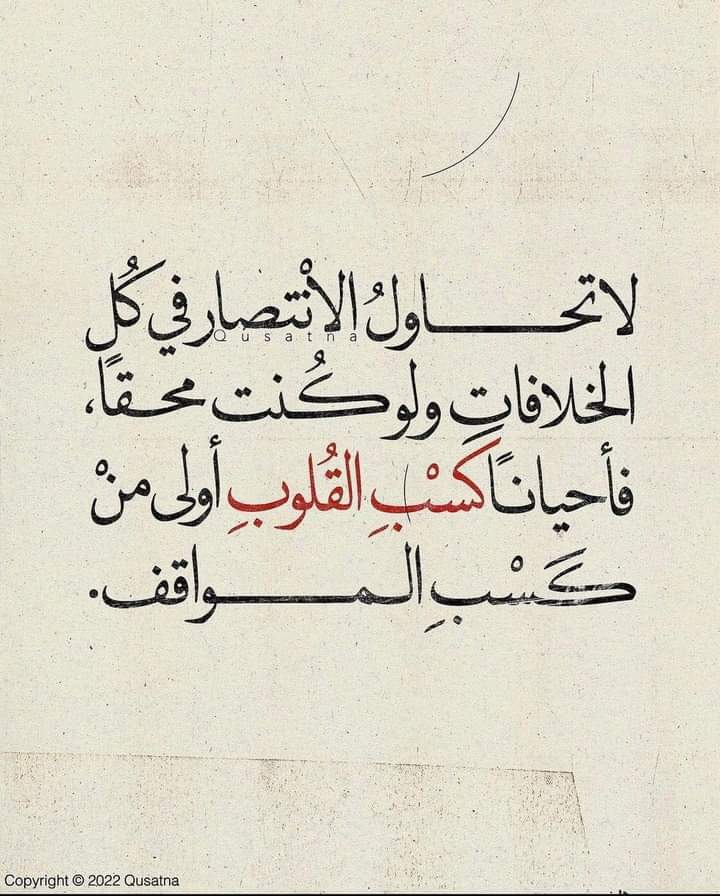 لا تحاولُ الانْتصار في كُل
Qusatna
الخلافاتِ ولو كُنت محقاً،
فأحياناً كسْبِ القُلوبِ أولى منْ
كَسْبِ المواقف.
Copyright © 2022 Qusatna